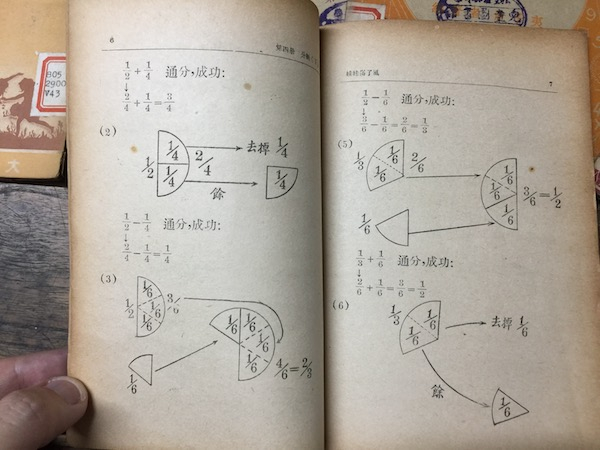 805
2900
V43
6
1/2 + 1/4 通分,成功:
↓
2/4 + 1/4 = 3/4
(2)
1/2 1/4 1/4 2/4 去掉 1/4
餘 1/4
1/2 - 1/4 通分,成功:
↓
2/4 - 1/4 = 1/4
(3)
1/2 1/6 1/6 1/6 3/6
1/6
1/6 1/6 1/6 1/6
4/6 = 2/3
7
1/2 - 1/6 通分,成功:
↓
3/6 - 1/6 = 2/6 = 1/3
(5)
1/3 1/6 1/6 2/6
1/6
1/6 1/6 1/6 3/6 = 1/2
1/3 + 1/6 通分,成功:
↓
2/6 + 1/6 = 3/6 = 1/2
(6)
1/3 1/6 1/6 去掉 1/6
餘 1/6